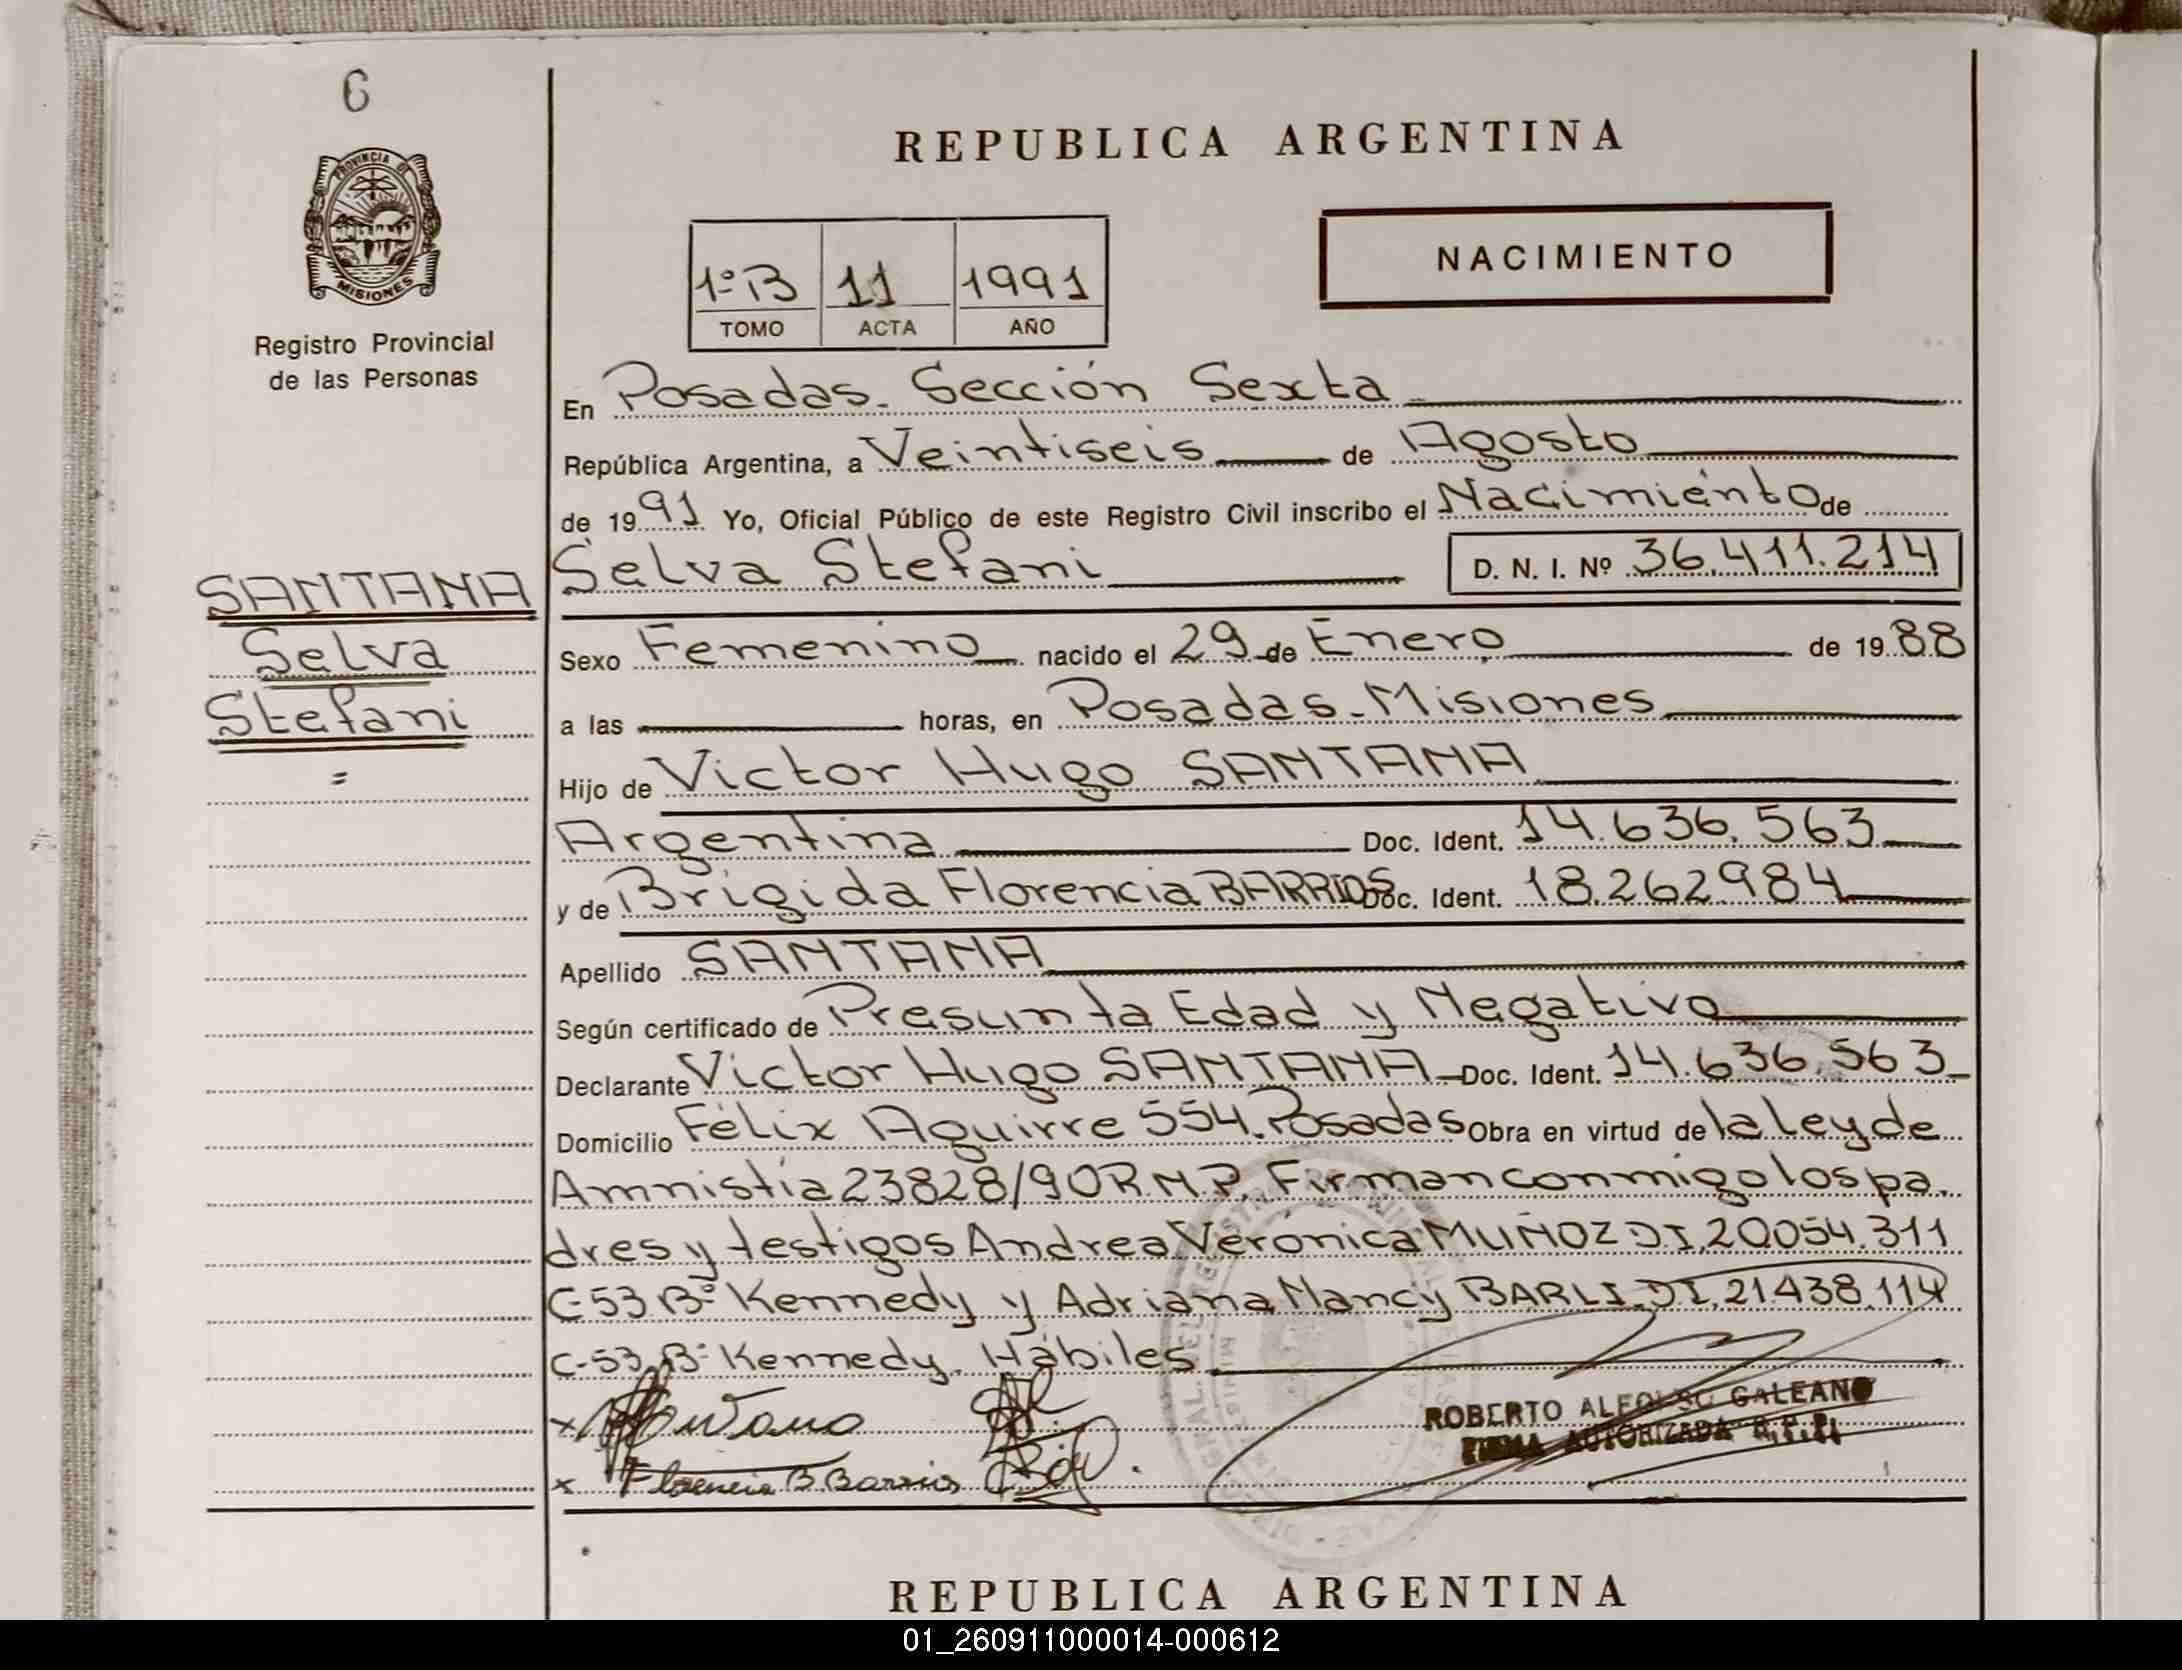 6
PROVINCIA DE
MISIONES
Registro Provincial
de las Personas
REPUBLICA ARGENTINA
1º B 11 1991
TOMO ACTA AÑO
NACIMIENTO
En Posadas. Sección Sexta
República Argentina, a Veintiseis de Agosto
de 1991 Yo, Oficial Público de este Registro Civil inscribo el Nacimiento de
SANTANA
Selva
Stefani
=
Selva Stefani D. N. I. Nº 36.411.214
Sexo Femenino nacido el 29 de Enero de 1988
a las horas, en Posadas-Misiones
Hijo de Victor Hugo SANTANA
Argentina Doc. Ident. 14.636.563
y de Brigida Florencia BARRIOS Doc. Ident. 18.262984
Apellido SANTANA
Según certificado de Presunta Edad y Negativo
Declarante Victor Hugo SANTANA Doc. Ident. 14.636.563
Domicilio Félix Aguirre 554. Posadas Obra en virtud de la ley de
Amnistía 23828/90 R.N.P. Firman conmigo los pa
dres y testigos Andrea Verónica MUÑOZ DI, 20054.311
C-53 Bº Kennedy y Adriana Nancy BARLI. DI, 21438.114
C-53 Bº Kennedy. Hábiles
ROBERTO ALFONSO GALEANO
FIRMA AUTORIZADA R.P.P.
x Florencia B. Barrios
REPUBLICA ARGENTINA
01_260911000014-000612